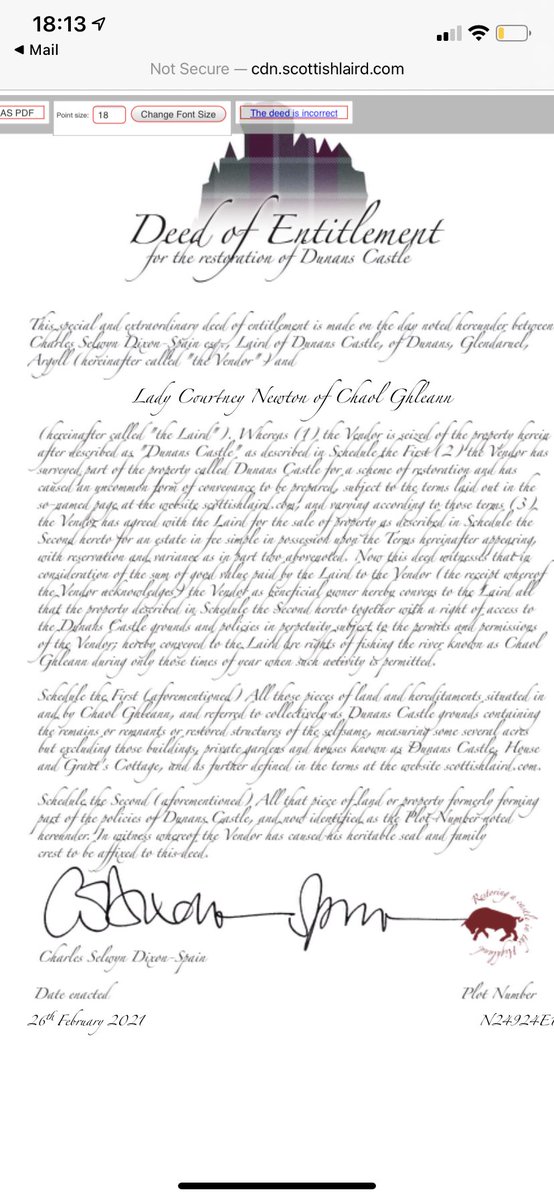 18:13
Mail
Not Secure — cdn.scottishlaird.com
AS PDF
Point size: 18 Change Font Size
The deed is incorrect
Deed of Entitlement
for the restoration of Dunans Castle
This special and extraordinary deed of entitlement is made on the day noted hereunder between
Charles Selwyn Dixon-Spain esq., Laird of Dunans Castle, of Dunans, Glendaruel,
Argyll (hereinafter called "the Vendor") and
Lady Courtney Newton of Chaol Ghleann
(hereinafter called "the Laird"). Whereas (1) the Vendor is seized of the property herein
after described as "Dunans Castle" as described in Schedule the First (2) the Vendor has
surveyed part of the property called Dunans Castle for a scheme of restoration and has
caused an uncommon form of conveyance to be prepared, subject to the terms laid out in the
so-named page at the website scottishlaird.com, and varying according to those terms (3)
the Vendor has agreed with the Laird for the sale of property as described in Schedule the
Second hereto for an estate in fee simple in possession upon the Terms hereinafter appearing,
with reservation and variance as in part two abovenoted. Now this deed witnesses that in
consideration of the sum of good value paid by the Laird to the Vendor (the receipt whereof
the Vendor acknowledges) the Vendor as beneficial owner hereby conveys to the Laird all
that the property described in Schedule the Second hereto together with a right of access to
the Dunans Castle grounds and policies in perpetuity subject to the permits and permissions
of the Vendor; hereby conveyed to the Laird are rights of fishing the river known as Chaol
Ghleann during only those times of year when such activity is permitted.
Schedule the First (aforementioned) All those pieces of land and hereditaments situated in
and by Chaol Ghleann, and referred to collectively as Dunans Castle grounds containing
the remains or remnants or restored structures of the selfsame, measuring some several acres
but excluding those buildings, private gardens and houses known as Dunans Castle, House
and Grant's Cottage, and as further defined in the terms at the website scottishlaird.com.
Schedule the Second (aforementioned) All that piece of land or property formerly forming
part of the policies of Dunans Castle, and now identified as the Plot Number noted
hereunder. In witness whereof the Vendor has caused his heritable seal and family
crest to be affixed to this deed.
Restoring a castle in the Highlands
Charles Selwyn Dixon-Spain
Date enacted
Plot Number
26th February 2021
N24924E1